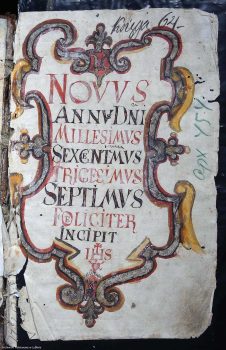 Księga 64
NOVVS
ANNVDNI
MILLESIMVS
SEXCENTMVS
TRIGECIMVS
SEPTIMVS
FOELICITER
INCIPIT
IHS